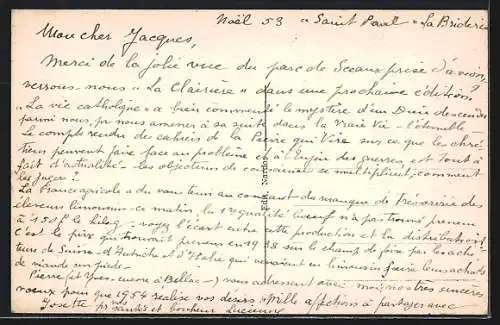 Noël 53 "Saint Paul" La Briderie
Mon cher Jacques,
Merci de la jolie vue du parc de Sceaux prise d'avion
verrons-nous "La Clairière" dans une prochaine édition?
"La vie catholique" a bien commenté le mystère d'un Dieu descendu
parmi nous pr nous amener à sa suite dans la Vraie Vie - l'éternelle -
Le compte rendu des cahiers de la Pierre qui Vire sur ce que les chré-
tiens peuvent faire face au problème et à l'Enjeu des guerres, est Tout à
fait d'actualité - les objecteurs de conscience se multiplient; comment
les juger?
La France agricole a dû vous tenir au courant du manque de Trésorerie des
éleveurs limousins - ce matin, la 1re qualité boeuf n'a pas trouvé preneur
à 150 f le kilog - voyez l'écart entre cette production et la distribution
C'est le prix qui trouvait preneur en 1938 sur le champ de foire par les ache-
teurs de Suisse, d'Autriche et d'Italie qui venaient en limousin faire leurs achats
de viande sur pieds -
Pierre (et Yves encore à Bellac -) vous adressent avec moi nos très sincères
voeux pour que 1954 réalise vos désirs - Mille affections à partager avec
Josette pr santés et bonheur Lucienne
Edit. Narcey